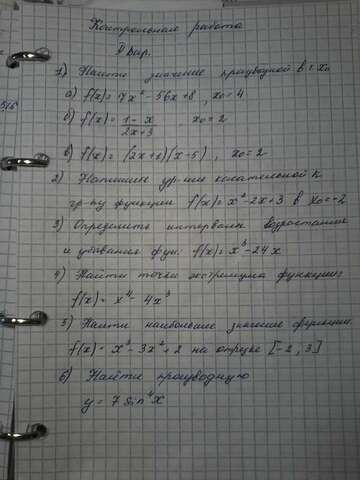 Контрольная работа
II Вар.
1) Найти значение производной в т. x₀
а) f(x) = 7x² - 56x + 8, x₀ = 4
б) f(x) = (1 - x)/(2x + 3) x₀ = 2
в) f(x) = (2x + 1)(x - 5), x₀ = 2
2) Напишите ур-ние касательной к
гр-ку функции f(x) = x² - 2x + 3 в x₀ = -2
3) Определить интервалы возрастания
и убывания фун. f(x) = x³ - 24x
4) Найти точки экстримума функции:
f(x) = x⁴ - 4x³
5) Найти наибольшее значение функции
f(x) = x³ - 3x² + 2 на отрезке [-2, 3]
6) Найти производную
y = 7 sin⁴x